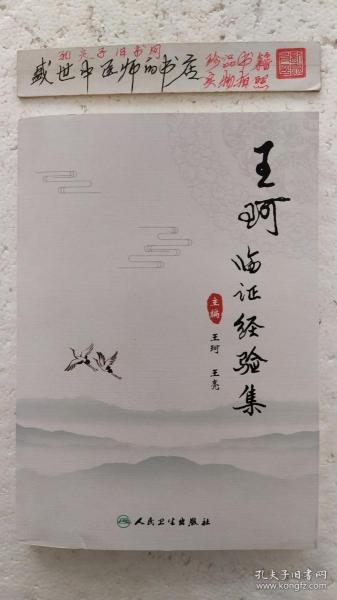 孔夫子旧书网
盛世中医师的书店
珍品书籍
实物拍照
王珂临证经验集
主编
王珂 王亮
人民卫生出版社
孔夫子旧书网
www.kongfz.com